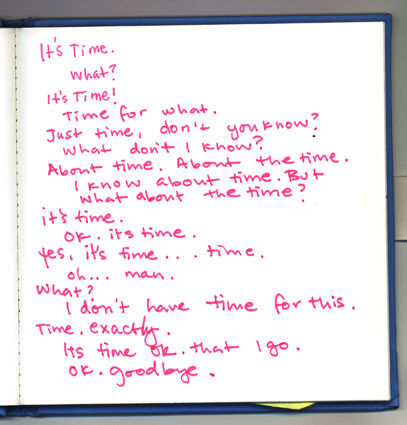 It's Time.
What?
It's Time!
Time for what.
Just time, don't you know?
What don't I know?
About time. About the time.
I know about time. But
what about the time?
it's time.
OK. its time.
yes, it's time... time.
oh... man.
What?
I don't have time for this.
Time. exactly.
Its time ok. that I go.
OK. goodbye.